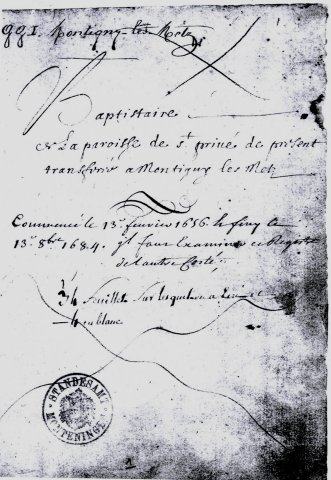 GG1 Montigny-lès-Metz
Baptistaire
De La paroisse de St privé de present
transferé a Montigny les Metz
Commencé le 13e fevrier 1656. le finy le
13e 8bre 1684. Il faut Examiner ce Registre
de l'autre Costé
34 feuillets sur lesquels
4 en blanc
STANDESAMT
MONTENINGEN
1